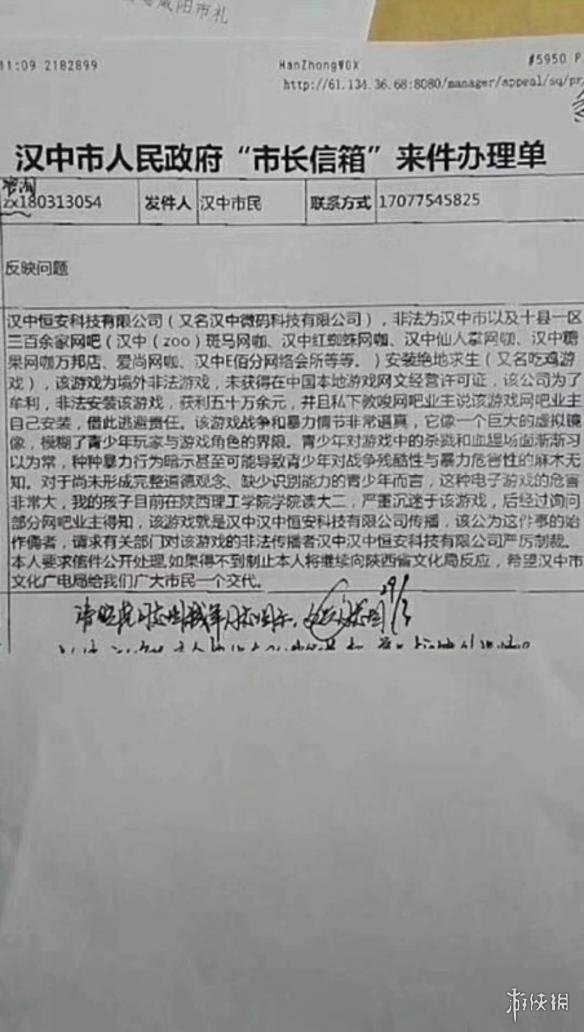 咸阳市礼
11:09 2182899 HanZhongWGX #5950 P.
http://61.134.36.68:8080/manager/appeal/sq/pr
汉中市人民政府“市长信箱”来件办理单
咨询
zx180313054 发件人 汉中市民 联系方式 17077545825
反映问题
汉中恒安科技有限公司（又名汉中微码科技有限公司），非法为汉中市以及十县一区
三百余家网吧（汉中（zoo）斑马网咖、汉中红蜘蛛网咖、汉中仙人掌网咖、汉中糖
果网咖万邦店、爱尚网咖、汉中E佰分网络会所等等。）安装绝地求生（又名吃鸡游
戏），该游戏为境外非法游戏，未获得在中国本地游戏网文经营许可证，该公司为了
牟利，非法安装该游戏，获利五十万余元，并且私下教唆网吧业主说该游戏网吧业主
自己安装，借此逃避责任。该游戏战争和暴力情节非常逼真，它像一个巨大的虚拟镜
像，模糊了青少年玩家与游戏角色的界限。青少年对游戏中的杀戮和血腥场面渐渐习
以为常，种种暴力行为暗示甚至可能导致青少年对战争残酷性与暴力危害性的麻木无
知。对于尚未形成完整道德观念、缺少识别能力的青少年而言，这种电子游戏的危害
非常大，我的孩子目前在陕西理工学院学院读大二，严重沉迷于该游戏，后经过询问
部分网吧业主得知，该游戏就是汉中汉中恒安科技有限公司传播，该公为这件事的始
作俑者，请求有关部门对该游戏的非法传播者汉中汉中恒安科技有限公司严厉制裁。
本人要求信件公开处理,如果得不到制止本人将继续向陕西省文化局反应，希望汉中市
文化广电局给我们广大市民一个交代。
游侠網